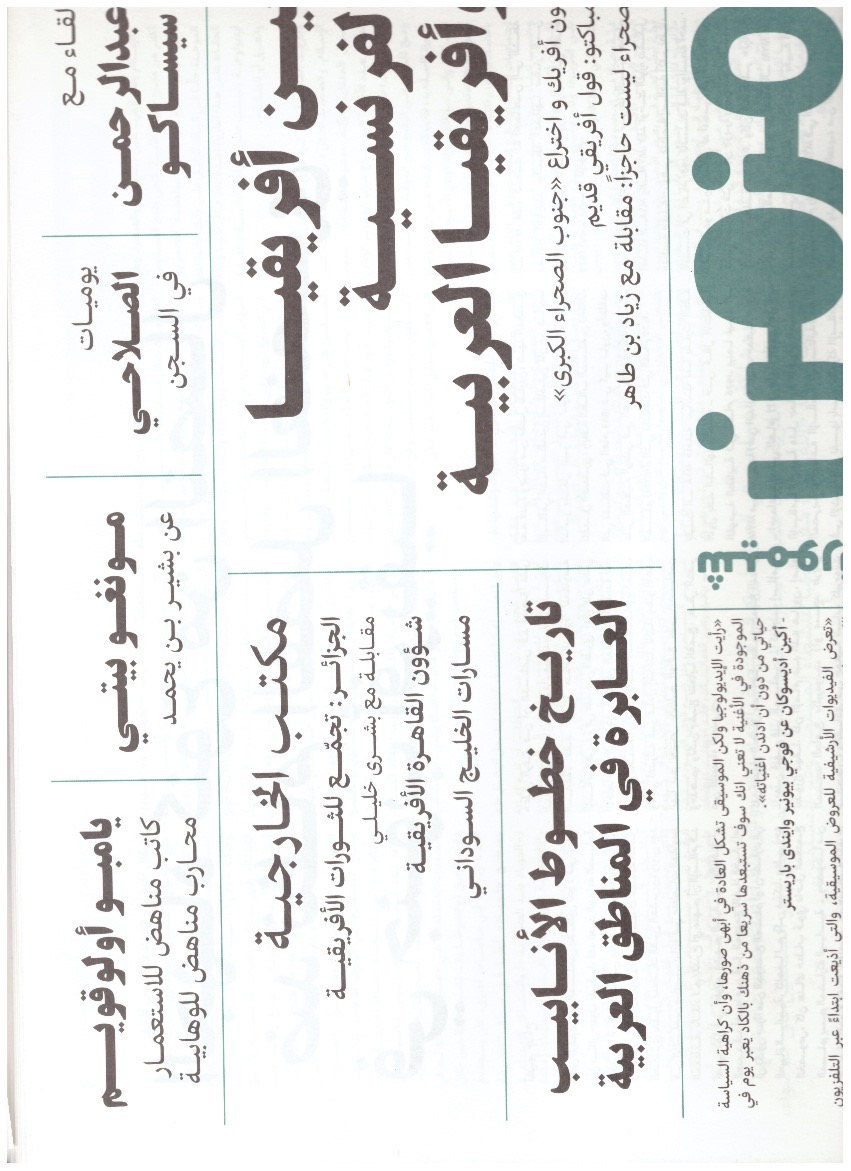 لقاء مع
عبدالرحمن
سيساكو
يوميات
الصلاحي
في السجن
مونغو بيتي
عن بشير بن يحمد
يامبو أولوقويم
كاتب مناهض للاستعمار
محارب مناهض للوهابية
ين أفريقيا
لفرنسية
أفريقيا العربية
ون أفريك و اختراع «جنوب الصحراء الكبرى»
مباكتو: قول أفريقي قديم
صحراء ليست حاجزاً: مقابلة مع زياد بن طاهر
مكتب الخارجية
الجزائر: تجمّع للثورات الأفريقية
مقابلة مع بشرى خليلي
شؤون القاهرة الأفريقية
مسارات الخليج السوداني
تاريخ خطوط الأنابيب
العابرة في المناطق العربية
شيمور
«رأيت الإيديولوجيا ولكن الموسيقى تشكل العادة في أبهى صورها، وأن كراهية السياسة
الموجودة في الأغنية لا تعني انك سوف تستبعدها سريعا من ذهنك بالكاد يعبر يوم في
حياتي من دون أن أدندن اغنياته».
- أكين أديسوكان عن فوجي بيونير وايندى باريستر
«تعرض الفيديوات الأرشيفية للعروض الموسيقية، والتي أذيعت ابتداءً عبر التلفزيون